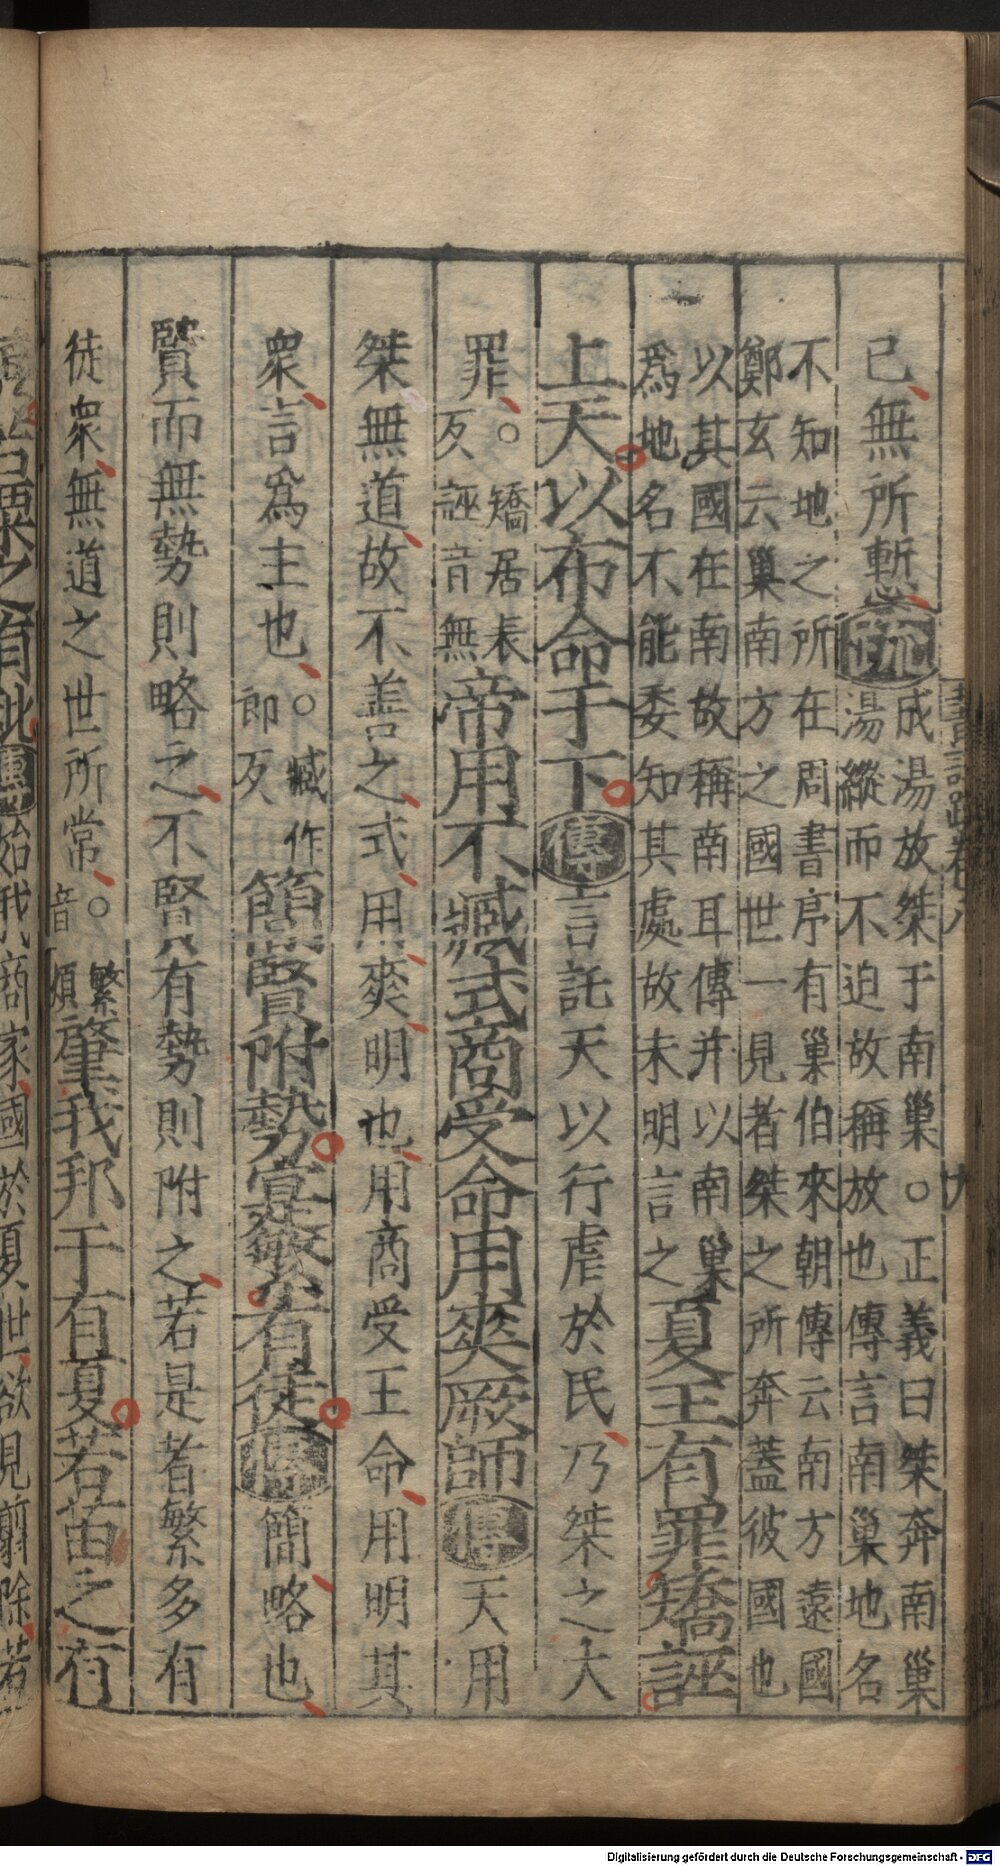 已無所慙疏成湯放桀于南巢○正義曰桀奔南巢
湯縱而不迫故稱放也傳言南巢地名
不知地之所在周書序有巢伯來朝傳云南方遠國
鄭玄云巢南方之國世一見者桀之所奔蓋彼國也
以其國在南故稱南耳傳并以南巢
為地名不能委知其處故未明言之夏王有罪矯誣
上天以布命于下傳言託天以行虐於民乃桀之大
罪○矯居表
反誣音無帝用不臧式商受命用爽厥師傳天用
桀無道故不善之式用爽明也用商受王命用明其
衆言為主也○臧作
郎反簡賢附勢寔繁有徒傳簡略也
賢而無勢則略之不賢有勢則附之若是者繁多有
徒衆無道之世所常○繁
音煩肇我邦于有夏若苗之有
始我商家國於夏世欲見翦除若
Digitalisierung gefördert durch die Deutsche Forschungsgemeinschaft - DFG